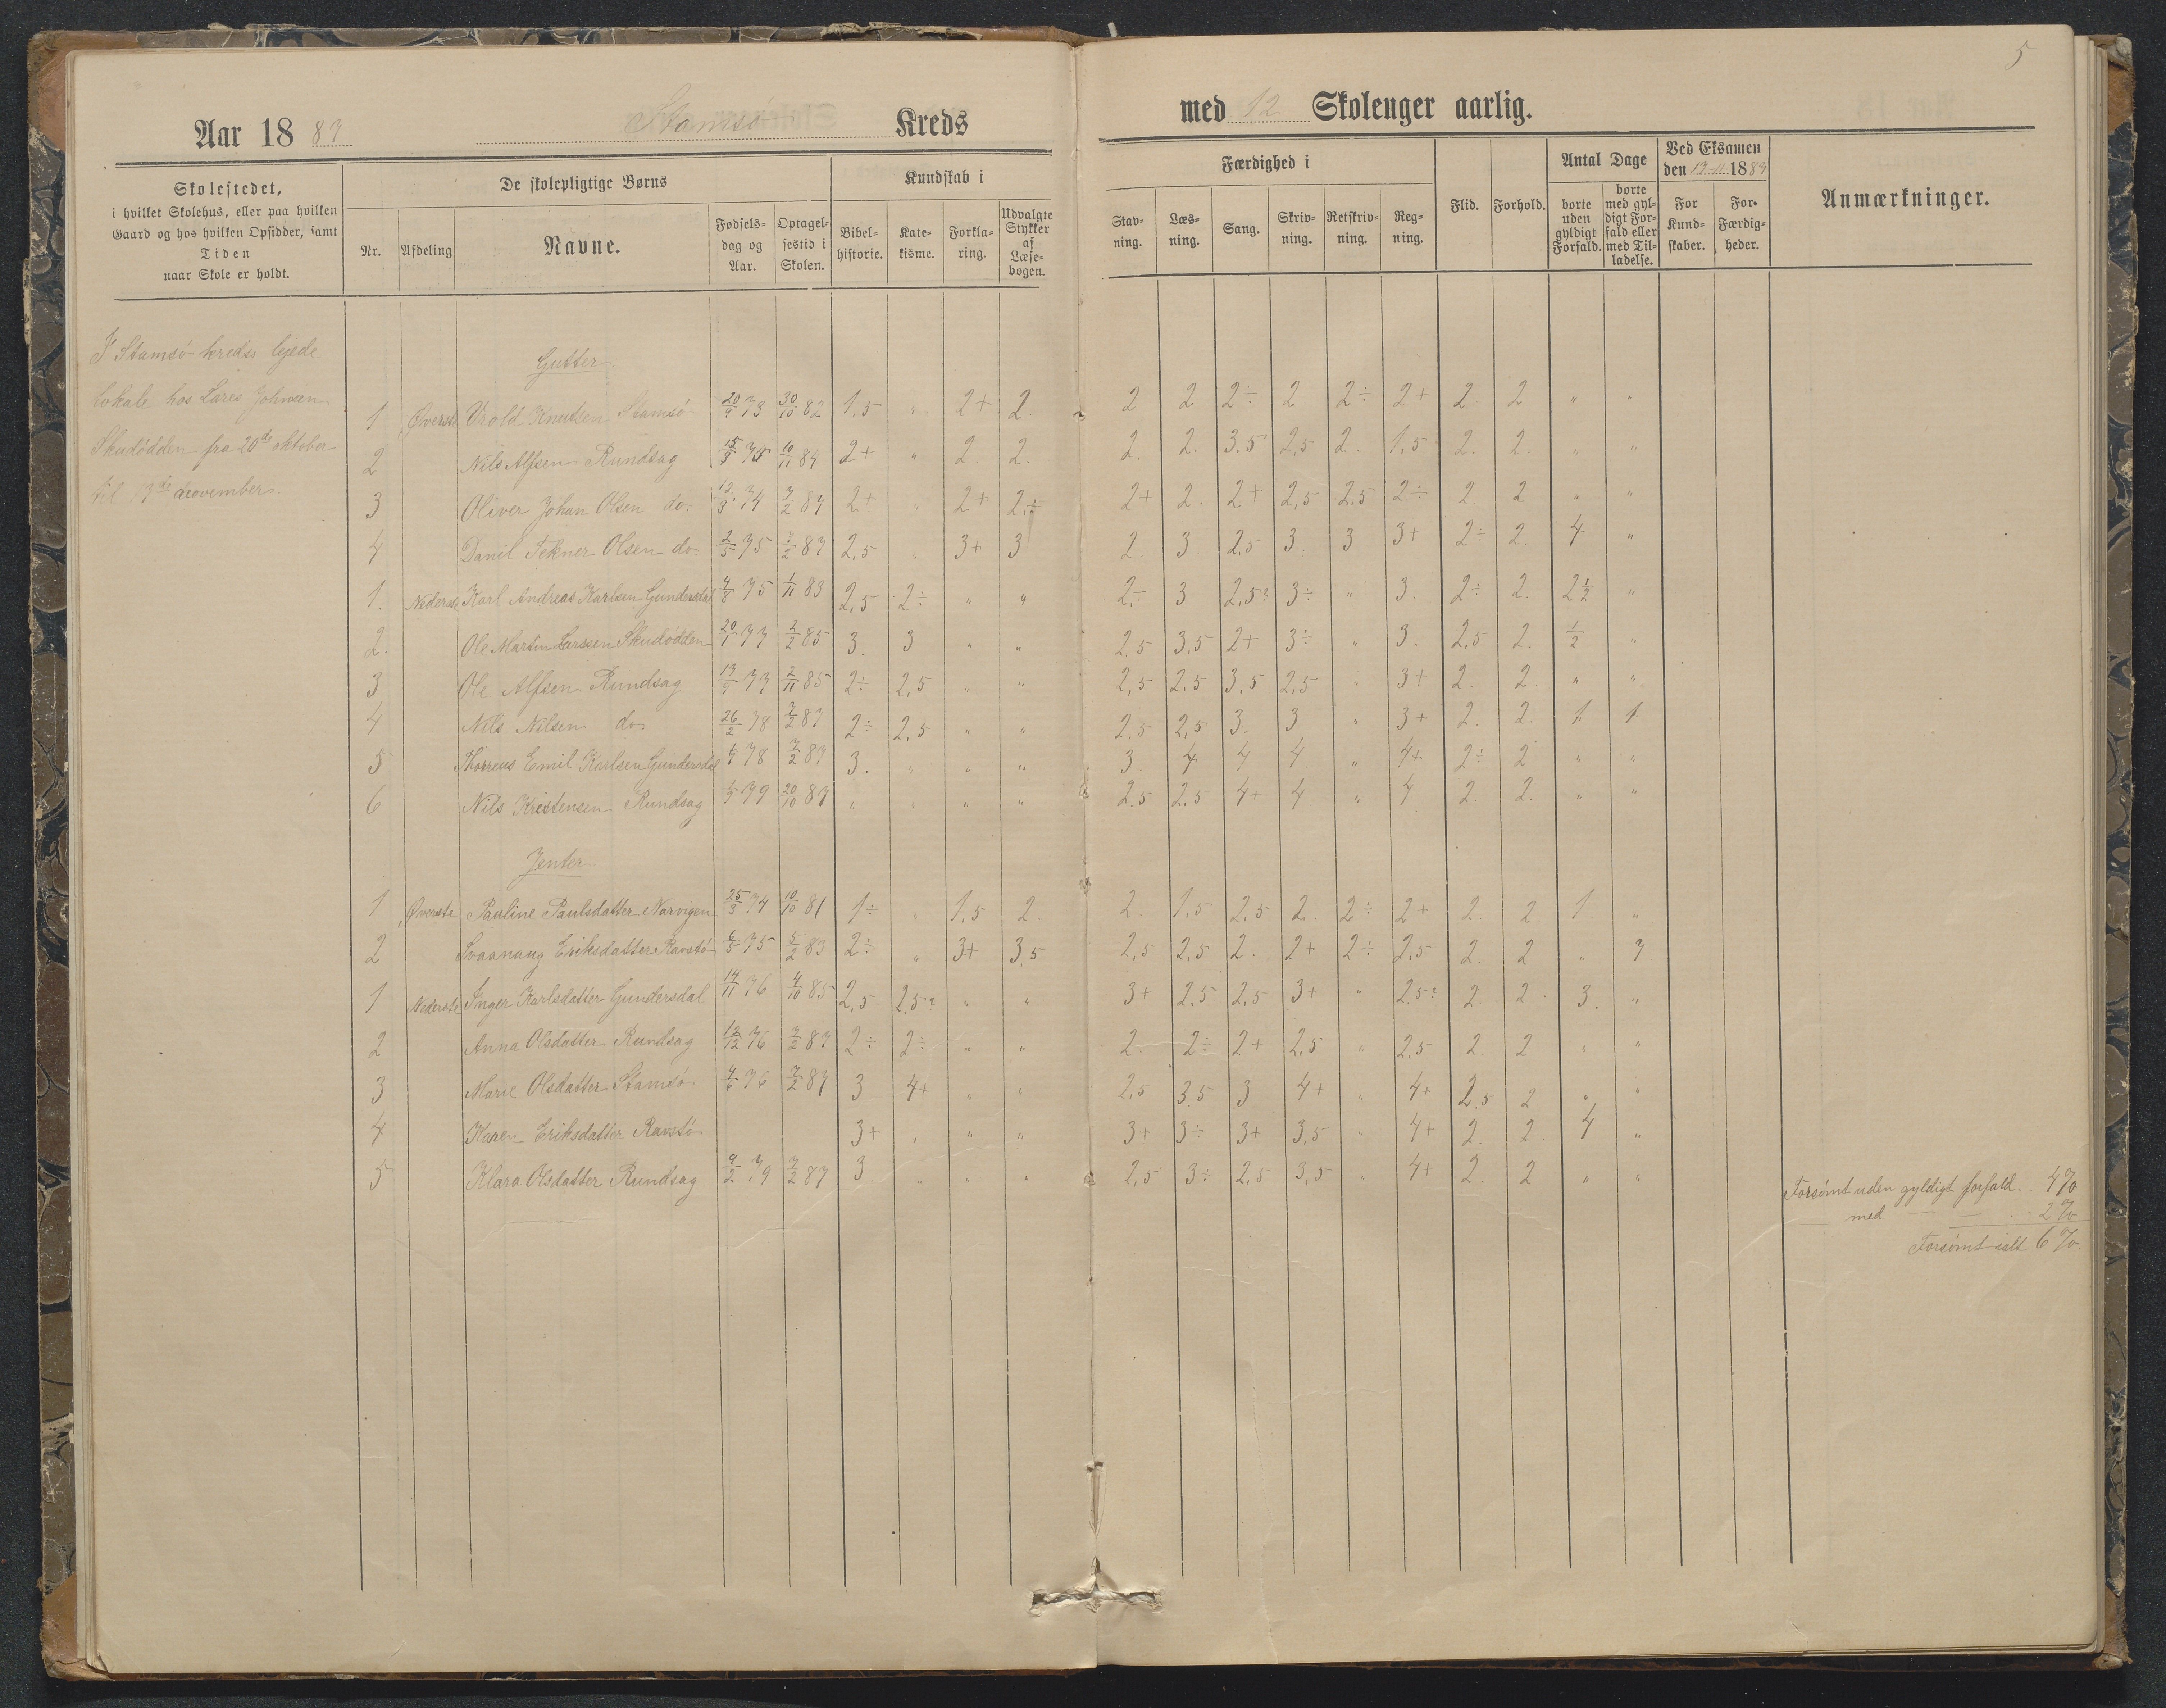 5
Aar 1887 Stamsø Kreds med 12 Skoleuger aarlig.
Skolestedet, i hvilket Skolehus, eller paa hvilken Gaard og hos hvilken Opsidder, samt Tiden naar Skole er holdt.
De skolepligtige Børns
Nr. Afdeling Navne. Fødselsdag og Aar. Optagelsestid i Skolen.
Kundskab i
Bibelhistorie. Katekisme. Forklaring. Udvalgte Stykker af Læsebogen.
Færdighed i
Stavning. Læsning. Sang. Skrivning. Retskrivning. Regning.
Flid. Forhold.
Antal Dage
borte uden gyldigt Forfald. borte med gyldigt Forfald eller med Tilladelse.
Ved Eksamen den 19-11 1887
For Kundskaber. For Færdigheder.
Anmærkninger.
I Stamsø kreds lejede
lokale hos Lars Johnsen
Skudødden fra 20de oktober
til 19de november.
Gutter
1 Øverste Knutsen Stamsø 20/9 73 30/10 82 1,5 " 2+ 2 2 2 2÷ 2 2÷ 2+ 2 2 " "
2 Nils Alfsen Rundsag 15/3 75 10/11 87 2+ " 2. 2. 2. 2. 3.5 2,5 2. 1.5 2. 2. " "
3 Oliver Johan Olsen do. 12/3 74 7/2 87 2+ " 2+ 2÷ 2+ 2. 2+ 2,5 2.5 2÷ 2 2 " "
4 Danil Olsen do 2/5 75 7/2 87 2,5 " 3+ 3 2. 3 2,5 3 3 3+ 2÷ 2. 4 "
1. Nederste Karl Andreas Karlsen Gundersdal 4/8 75 1/11 83 2,5 2÷ " " 2÷ 3 2,5? 3÷ " 3. 2÷ 2. 2½ "
2. Ole Martin Larssen Skudødden 20/1 77 2/2 85 3. 3 " " 2.5 3,5 2+ 3÷ " 3. 2,5 2. ½ "
3 Ole Alfsen Rundsag 77 2/11 85 2÷ 2,5 " " 2,5 2.5 3,5 2,5 " 3+ 2. 2. " "
4 Nils Nilsen do 26/2 78 7/2 87 2÷ 2,5 " " 2,5 2,5 3. 3 " 3+ 2. 2. 1 1
5 Emil Karlsen Gundersdal 78 7/2 87 3. " " " 3. 4 4 4. " 4+ 2÷ 2 " "
6 Nils Kristensen Rundsag 79 20/10 87 " " " " 2.5 2.5 4+ 4 " 4 2. 2. " "
Jenter
1 Øverste Pauline Paulsdatter Narvigen 25/3 74 10/10 81 1÷ " 1,5 2. 2. 1,5 2,5 2. 2÷ 2+ 2. 2. 1. "
2 Svaanaug Eriksdatter Ravstø 6/5 75 5/2 83 2÷ " 3+ 3,5 2,5 2.5 2. 2+ 2÷ 2.5 2. 2 " 7
1 Nederste Inger Karlsdatter Gundersdal 14/11 76 4/10 85 2,5 2,5? " " 3+ 2.5 2,5 3+ " 2.5? 2. 2. 3. "
2 Anna Olsdatter Rundsag 12/12 76 7/2 87 2÷ 2÷ " " 2. 2÷ 2+ 2,5 " 2,5 2. 2 " "
3 Marie Olsdatter Stamsø 4/6 76 7/2 87 3 4+ " " 2,5 3.5 3 4+ " 4+ 2,5 2 " "
4 Karen Eriksdatter Ravstø 3+ " " " 3+ 3÷ 3+ 3,5 " 4+ 2. 2. 4 "
5 Klara Olsdatter Rundsag 9/2 79 7/2 87 3. " " " 2,5 3÷ 2,5 3,5 " 4+ 2. 2 " "
Forsømt uden gyldigt forfald. . 4%
med — — . . 2%
Forsømt ialt 6%